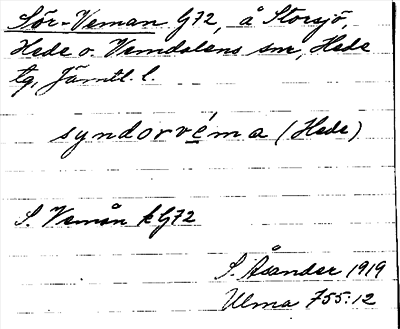 Sör-Veman G72, å Storsjö,
Hede o. Vemdalens sm, Hede
tg, Jämtl. l.
syndorvéma (Hede)
S. Vemån k G72
S. Åsander 1919
Ulma 755:12